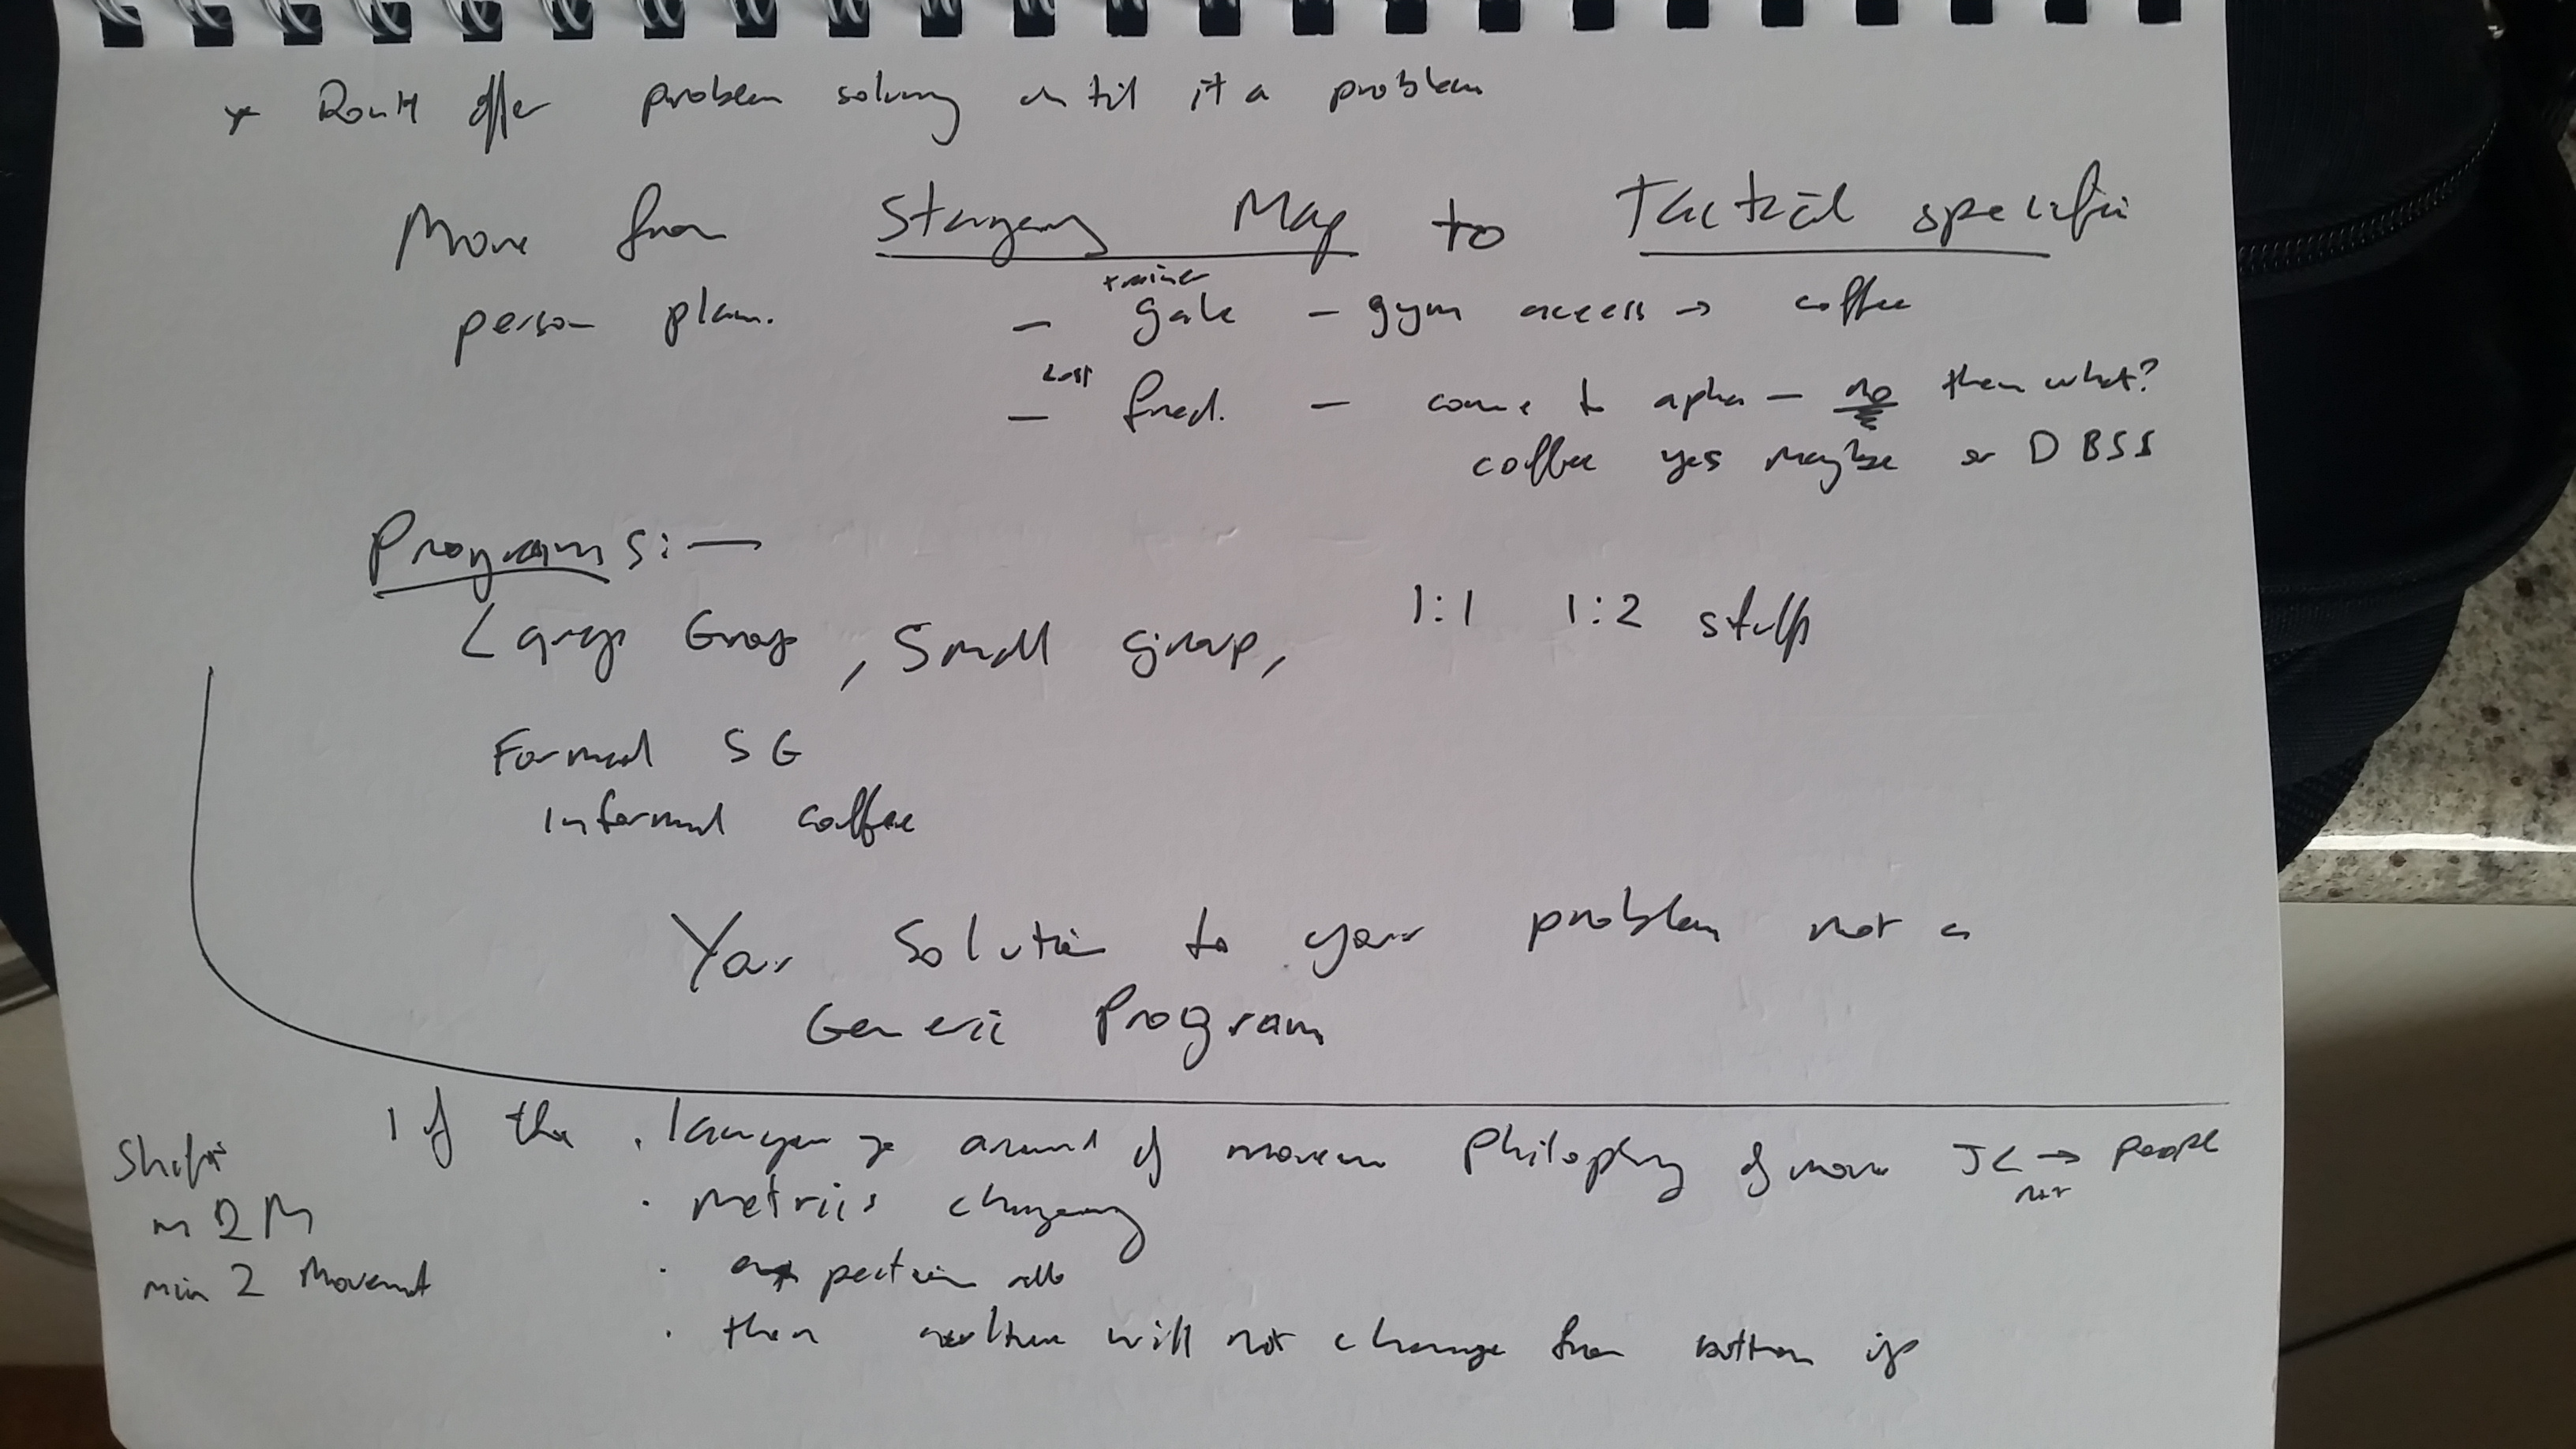 * Don't offer problem solving until it a problem
Move from Strategy Map to Tactical specific
person plan. - trainer gale - gym access → coffee
- Lost fred. - come to apha - no then what?
coffee yes maybe or DBSS
Programs: -
Large Group, Small group, 1:1 1:2 stuff
Formal SG
Informal coffee
Your Solution to your problem not a
Generic Program
If the . language around of movem Philosophy of more JC → people
not
Shift
m 2 M
min 2 Movemt
· Metrics changeing
· pection
· then culture will not change from bottom up